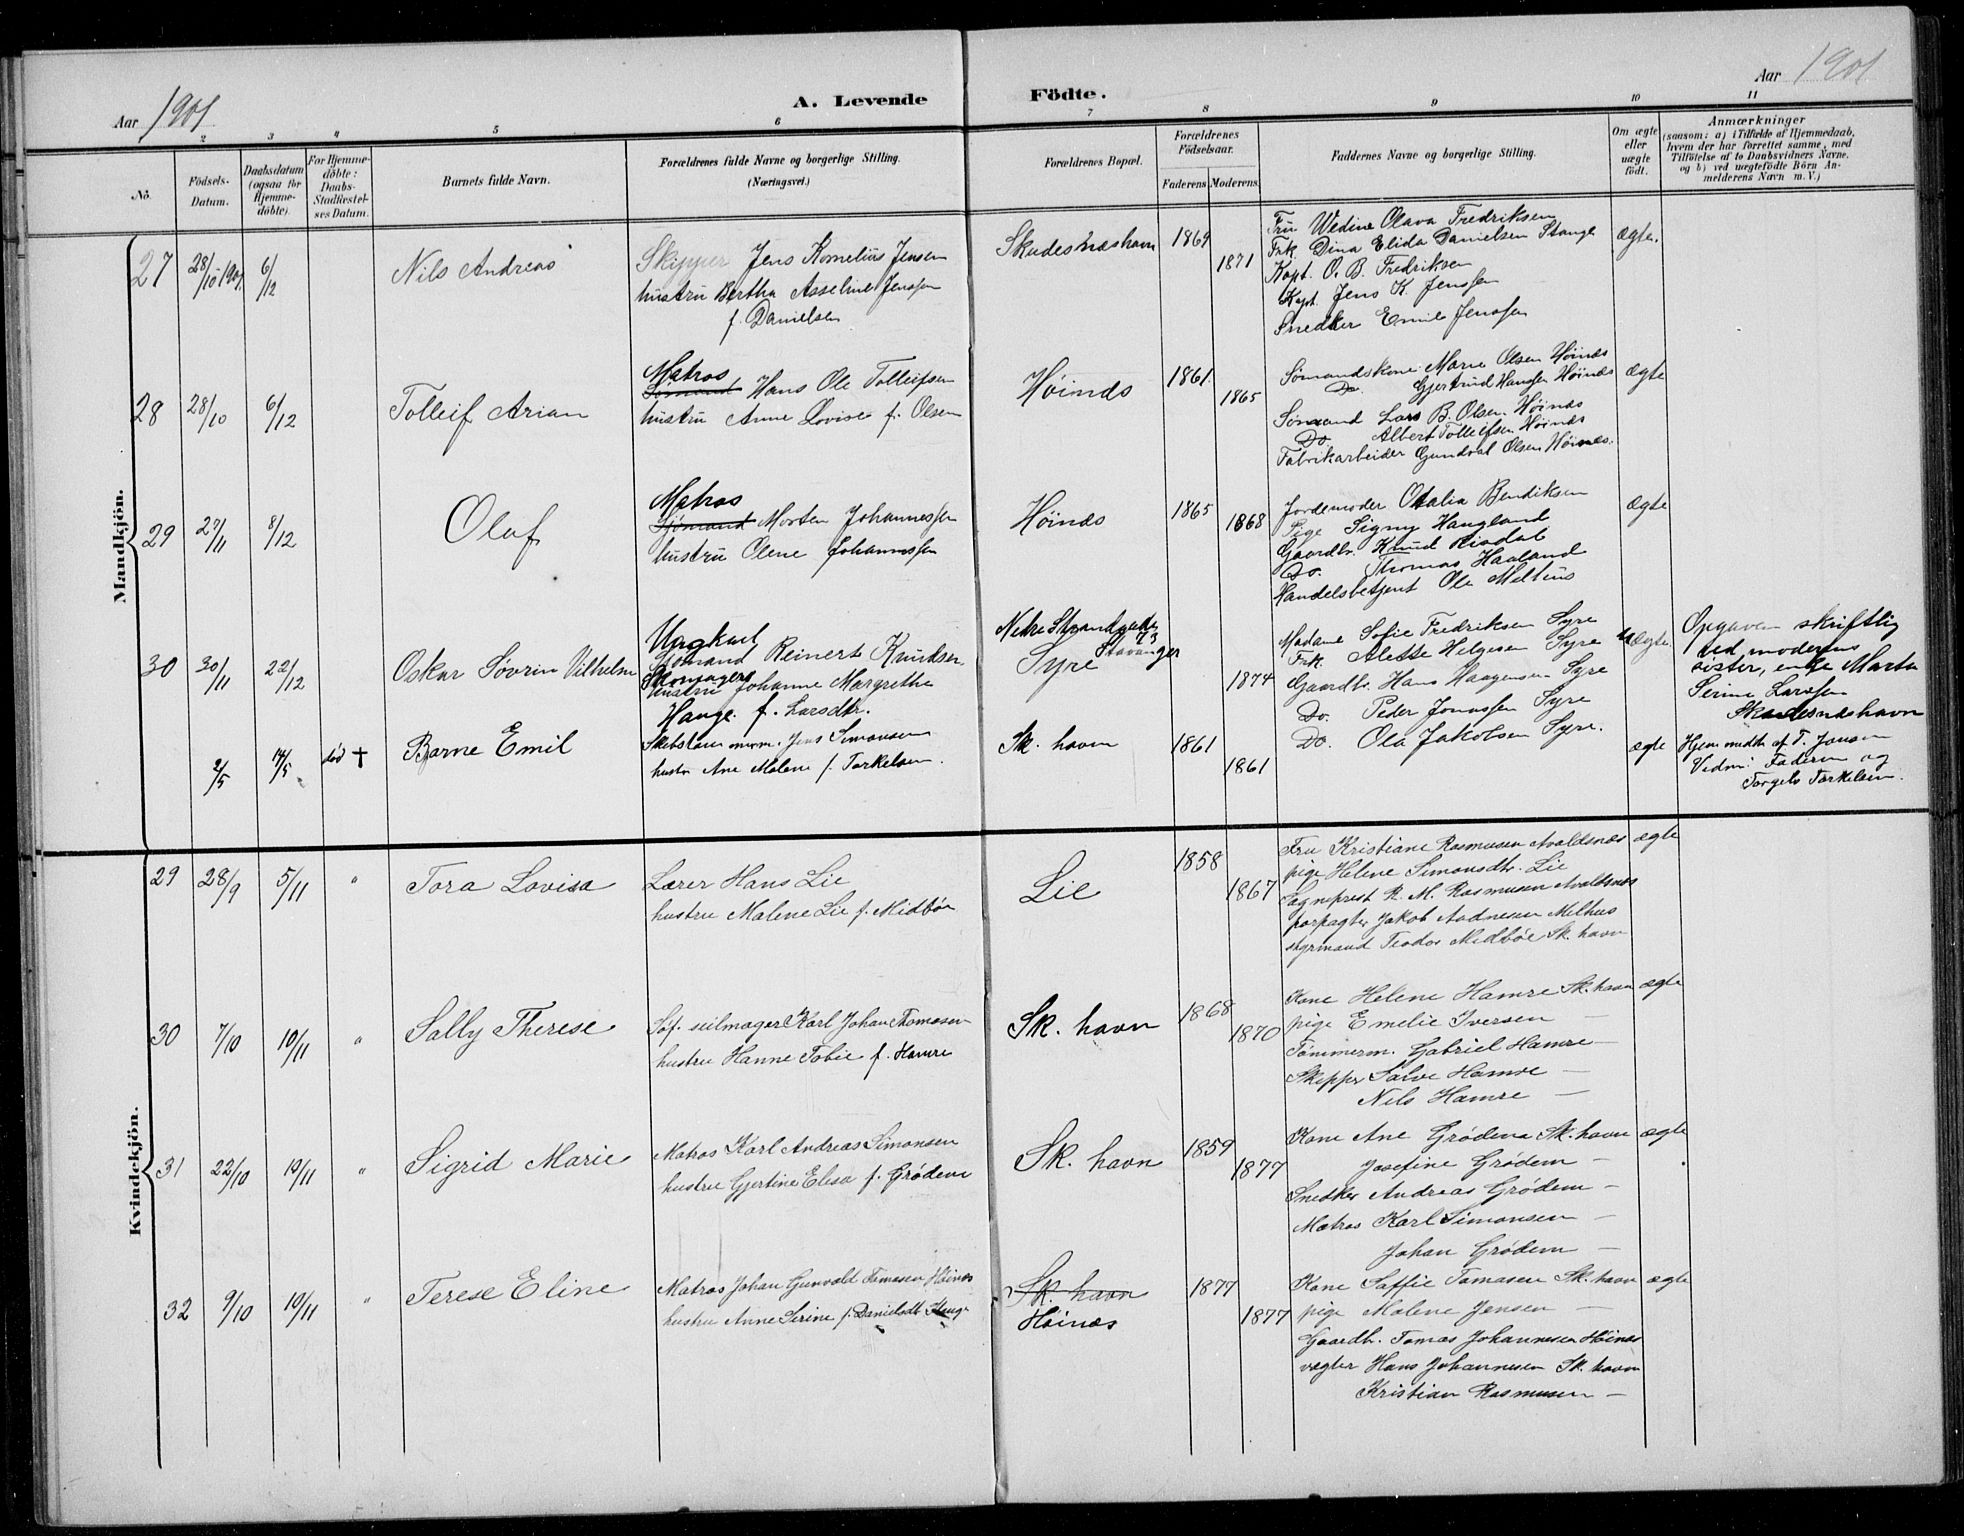 Aar 1901
A. Levende Födte.
Aar 1901
2 3 4 5 6 7 8 9 10 11
No.
Födsels-Datum.
Daabsdatum (ogsaa for Hjemme-döbte).
For Hjemme-döbte: Daabs-Stadfæstel-ses Datum.
Barnets fulde Navn.
Forældrenes fulde Navne og borgerlige Stilling.
(Næringsvei.)
Forældrenes Bopæl.
Forældrenes Födselsaar.
Faderens. Moderens.
Faddernes Navne og borgerlige Stilling.
Om ægte eller uægte födt.
Anmærkninger
(saasom: a) i Tilfælde af Hjemmedaab,
hvem der har forrettet samme, med
Tilföielse af to Daabsvidners Navne.
og b) ved uægtefödte Börn An-
melderens Navn m. V.)
Mandkjön.
27 28/10 1901. 6/12 Nils Andreas
Skipper Jens Kornelius Jensen
hustru Bertha Asseline Jenssen
f. Danielsen
Skudesnæshavn 1869 1871
Fru Wedine Olava Fredriksen
Frk. Dina Elida Danielsen Stange
Kapt. O. B. Fredriksen
Kapt. Jens K. Jenssen
Snedker Emil Jenssen
ægte.
28 28/10 6/12 Tolleif Arian
Matros
Sømand Hans Ole Tolleifsen
hustru Anne Lovise f. Olsen
Høinæs 1861. 1865
Sømandskone Marie Olsen Høinæs
Do. Gjertrud Hansen Høinæs
Sømand Lars B. Olsen Høinæs
Do. Albert Tolleifsen Høinæs
Fabrikarbeider Gundval Olsen Høinæs.
ægte
29 27/11 8/12 Olaf
Matros
Sjömand Morten Johannessen
hustru Olene Johannessen
Høinæs 1865 1868
Jordemoder Otalia Bendiksen
Pige Signy Haugland
Gaardbr. Knud Risdal
Do. Thomas Haaland
Handelsbetjent Ole Melhus
ægte
30 30/11 22/12 Oskar Søvrin Vilhelm
Ungkarl
Sjömand Reinert Knudsen
hustru Johanne Margrethe
Hauge f. Larsdtr.
Nedre Strandgade 73
Stavanger
Syre 1874
Madane Sofie Fredriksen Syre
Frk. Alette Helgesen Syre
Gaardbr. Hans Haagensen Syre
Do. Peder Jonassen Syre
Do. Ola Jakobsen Syre.
uægte
Opgaven skriftlig
ved moderens
søster, enke Marta
Serine Larssen
Skudesnæshavn
2/5 14/5 død + Bjarne Emil
Jens Simonsen
hustr Ane Malene f. Torkelsen.
Sk. havn 1861 1861
ægte
Hjemmedbt. af T. Jansen
Vidn: Faderen og
Torgels Torkelsen.
Kvindekjön.
29 28/9 5/11 " Tora Lovisa
Lærer Hans Lie
hustru Malene Lie f. Midbøe
Lie 1858 1867
Fru Kristiane Rasmusen Avaldsnæs
pige Helene Simonsdtr. Lie
Sogneprest R. M. Rasmusen Avaldsnæs
forpagter Jakob Aadnesen Melhus
styrmand Teodor Midbøe Sk. havn
ægte
30 7/10 10/11 " Sally Therese
Sof. seilmager Karl Johan Thomasen
hustru Hanne Tobie f. Hamre
Sk. havn 1868 1870
Kone Helene Hamre Sk. havn
pige Emelie Iversen —
Tømmerm. Gabriel Hamre —
Skipper Salve Hamre —
Nils Hamre —
ægte
31 22/10 10/11 " Sigrid Marie
Matros Karl Andreas Simonsen
hustru Gjertine Elisa f. Grødem
Sk. havn 1859 1877
Kone Ane Grødem Sk. havn
Josefine Grødem —
Snedker Andreas Grødem —
Matros Karl Simonsen —
Johan Grødem —
ægte
32 9/10 10/11 " Terese Eline
Matros Johan Gunvald Tomasen Høinæs
hustru Anne Serine f. Danielsdt. Hauge
Sk. havn
Høinæs 1877 1877
Kone Saffie Tomasen Sk. havn
pige Malene Jensen —
Gaardb. Tomas Johannesen Høinæs
vægter Hans Johannesen Sk. havn
Kristian Rasmusen —
ægte